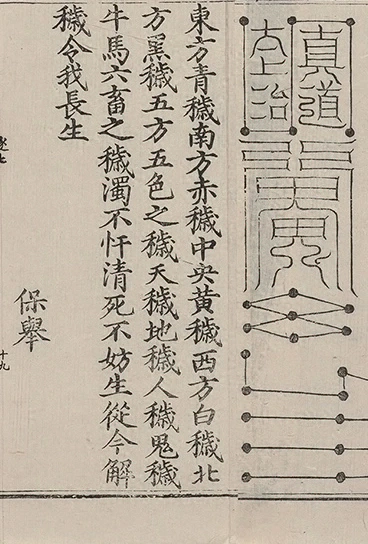 東方青穢南方赤穢中央黃穢西方白穢北
方黑穢五方五色之穢天穢地穢人穢鬼穢
牛馬六畜之穢濁不忏清死不妨生從今解
穢令我長生
保舉
十九